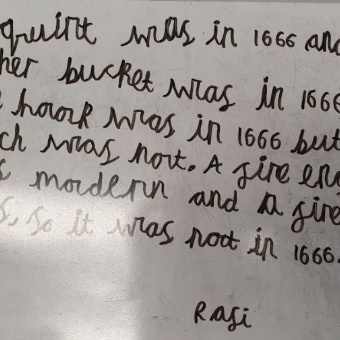 quirt was in 1666 and
her bucket was in 1666
hook was in 1666 but
ch was not. A fire en
s modern and a fire
s, so it was not in 1666.
Rafi